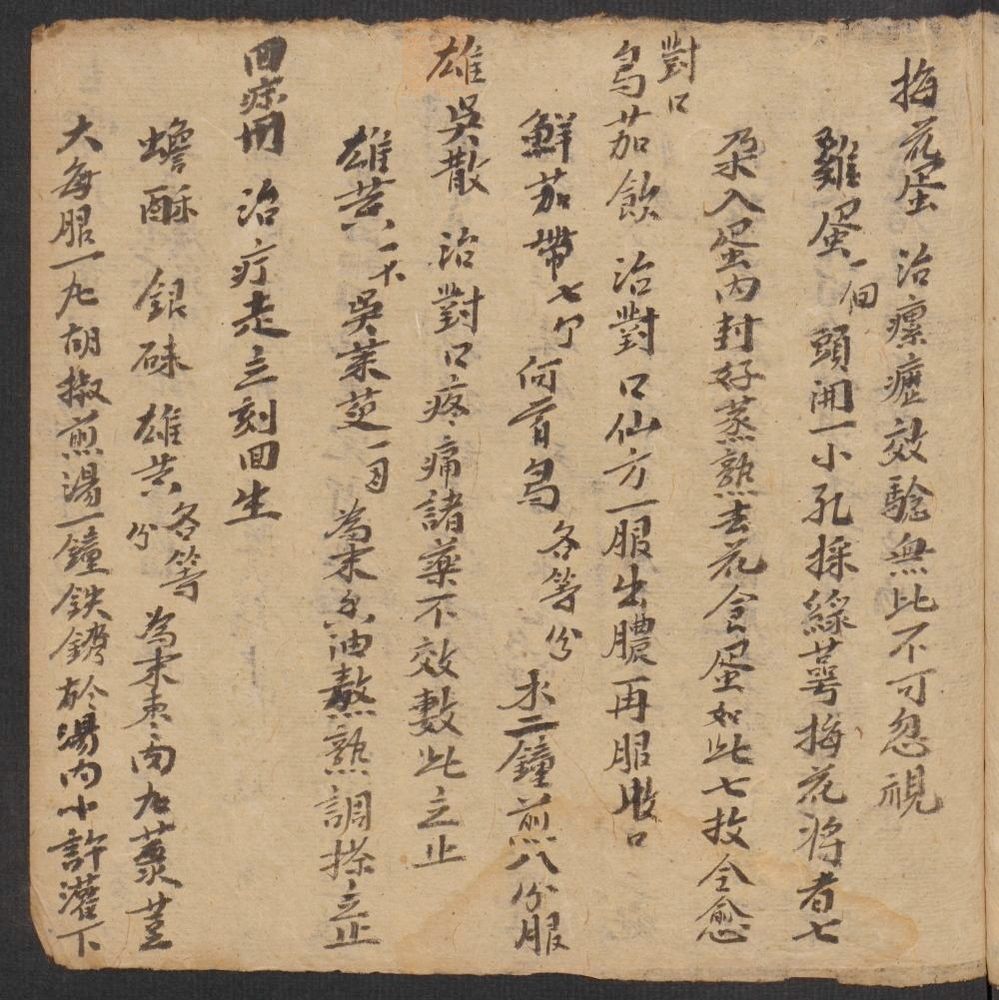 梅花蛋 治瘰癧效驗無比不可忽視
雞蛋一個 頭開一小孔採綠萼梅花將者七
朶入蛋內封好蒸熟去花食蛋如此七枚全愈
對口
烏茄飲 治對口仙方一服出膿再服收口
鮮茄帶七個 何首烏 各等分 水二鐘煎八分服
雄吳散 治對口疼痛諸藥不效敷此立止
雄黃一 吳茱萸一 為末 油熬熟調搽立止
治疔走立刻回生
蟾酥 銀硃 雄黃 各等分 為末棗肉丸 荳
大每服一丸胡椒煎湯一鐘鉄鏽於湯內小許灌下